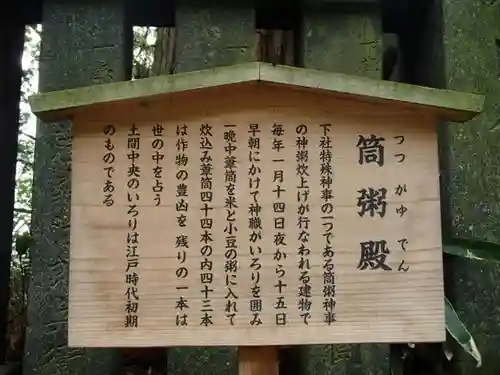 筒粥殿
つつがゆでん
下社特殊神事の一つである筒粥神事
の神粥炊上げが行なわれる建物で
毎年一月十四日夜から十五日
早朝にかけて神職がいろりを囲み
一晩中葦筒を米と小豆の粥に入れて
炊込み葦筒四十四本の内四十三本
は作物の豊凶を 残りの一本は
世の中を占う
土間中央のいろりは江戸時代初期
のものである